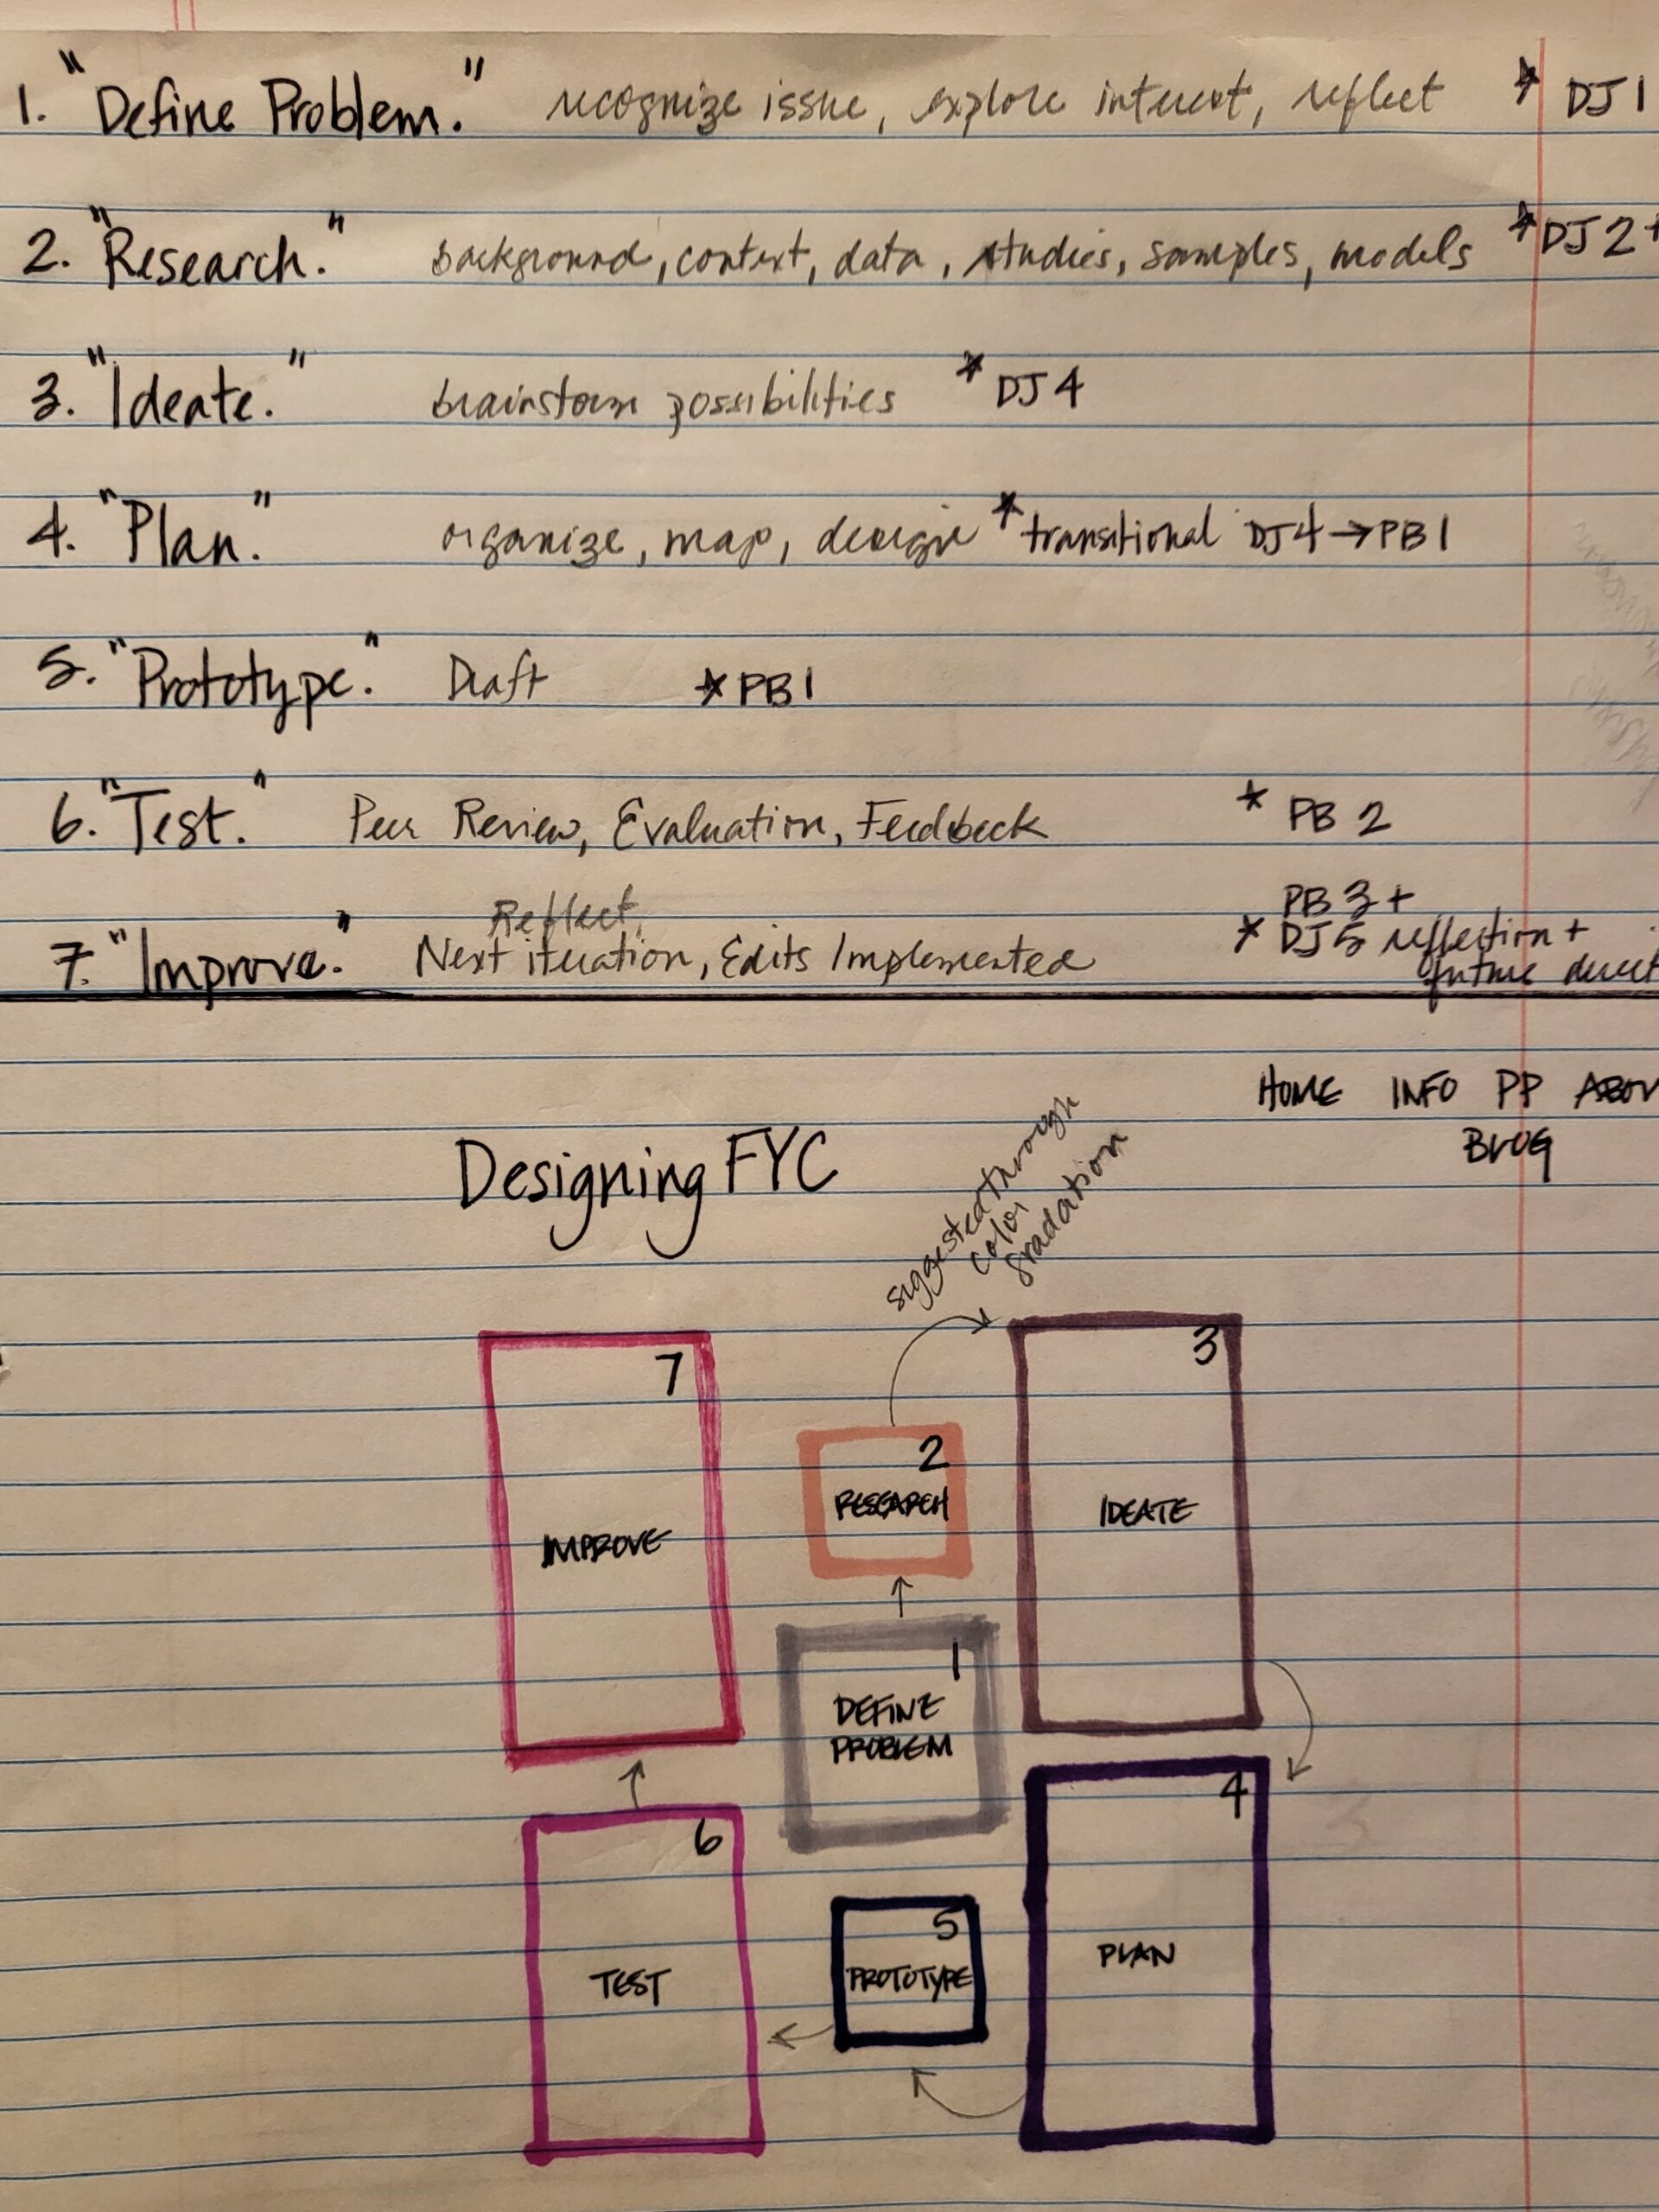 1. "Define Problem." recognize issue, explore interest, reflect * DJ 1
2. "Research." background, context, data, studies, samples, models * DJ 2 +
3. "Ideate." brainstorm possibilities * DJ 4
4. "Plan." organize, map, design * transitional DJ4 → PB 1
5. "Prototype." Draft * PB 1
6. "Test." Peer Review, Evaluation, Feedback * PB 2
Reflect, PB 3 +
7. "Improve." Next iteration, Edits Implemented * DJ 5 reflection +
future direct
HOME INFO PP ABOU
BLOG
Designing FYC
suggested through
color
gradation
7
IMPROVE
2
RESEARCH
3
IDEATE
1
DEFINE
PROBLEM
6
TEST
5
PROTOTYPE
4
PLAN